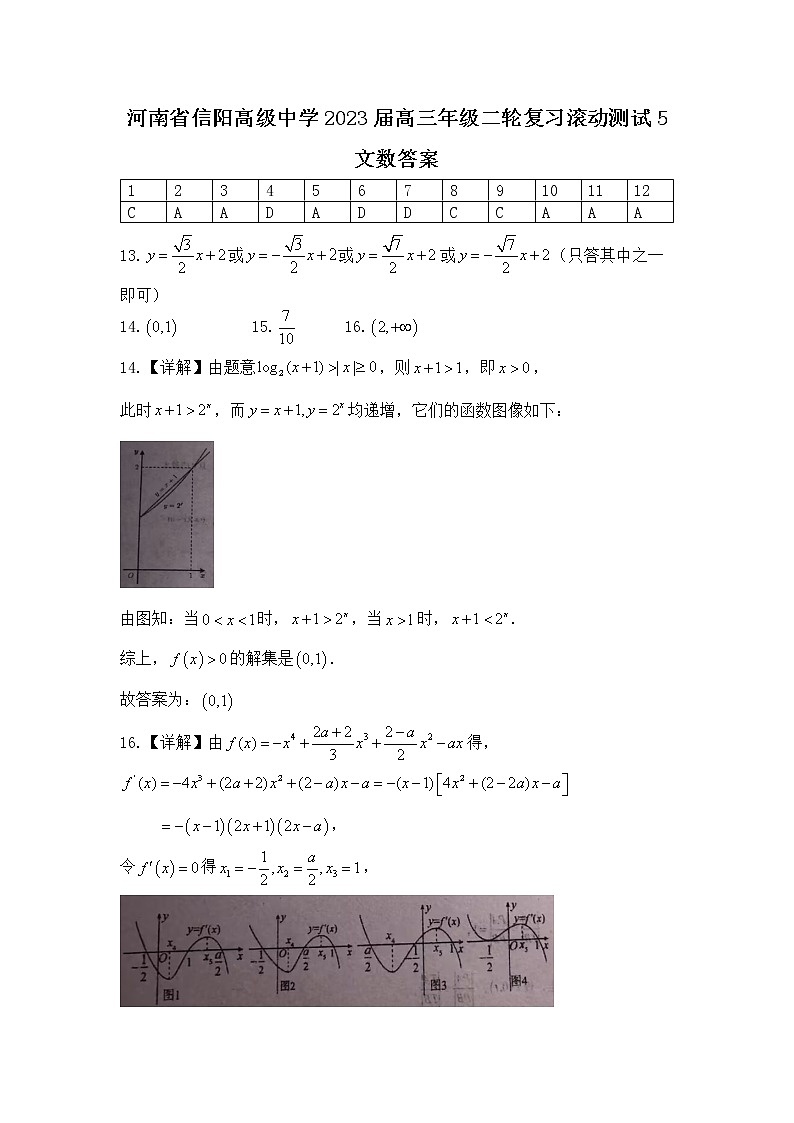 河南省信阳高级中学 2023 届高三年级二轮复习滚动测试 5
文数答案
1 2 3 4 5 6 7 8 9 10 11 12
C A A D A D D C C A A A
13. y=\frac{\sqrt{3}}{2}x+2或y=-\frac{\sqrt{3}}{2}x+2或y=\frac{\sqrt{7}}{2}x+2 或y=-\frac{\sqrt{7}}{2}x+2（只答其中之一
即可）
14. (0,1) 15. \frac{7}{10} 16. (2,+∞)
14.【详解】由题意log₂(x+1)>|x|≥0，则x+1>1，即x>0，
此时x+1>2ˣ，而y=x+1,y=2ˣ均递增，它们的函数图像如下：
y
2
y=x+1
y=2ˣ
O 1 x
由图知：当0<x<1时，x+1>2ˣ，当x>1时，x+1<2ˣ．
综上，f(x)>0的解集是(0,1)．
故答案为：(0,1)
16.【详解】由f(x)=-x⁴+\frac{2a+2}{3}x³+\frac{2-a}{2}x²-ax得，
f'(x)=-4x³+(2a+2)x²+(2-a)x-a=-(x-1)[4x²+(2-2a)x-a]
=-(x-1)(2x+1)(2x-a)，
令f'(x)=0得x₁=-\frac{1}{2},x₂=\frac{a}{2},x₃=1，
y y=f'(x) x₄ -\frac{1}{2} O 1 x₅ \frac{a}{2} x 图1
y y=f'(x) x₄ -\frac{1}{2} O \frac{a}{2} x₅ 1 x 图2
y y=f'(x) \frac{a}{2} x₄ -\frac{1}{2} x₅ 1 x 图3
y y=f'(x) -\frac{1}{2} O x₅ 1 x 图4